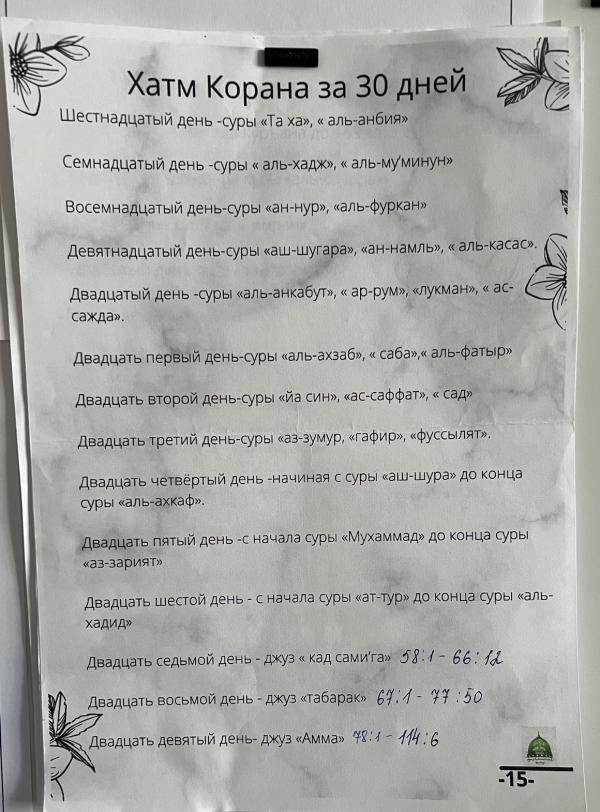 Хатм Корана за 30 дней
Шестнадцатый день -суры «Та ха», « аль-анбия»
Семнадцатый день -суры « аль-хадж», « аль-му’минун»
Восемнадцатый день-суры «ан-нур», «аль-фуркан»
Девятнадцатый день-суры «аш-шугара», «ан-намль», « аль-касас».
Двадцатый день -суры «аль-анкабут», « ар-рум», «лукман», « ас-
сажда».
Двадцать первый день-суры «аль-ахзаб», « саба»,« аль-фатыр»
Двадцать второй день-суры «йа син», «ас-саффат», « сад»
Двадцать третий день-суры «аз-зумур, «гафир», «фуссылят».
Двадцать четвёртый день -начиная с суры «аш-шура» до конца
суры «аль-ахкаф».
Двадцать пятый день -с начала суры «Мухаммад» до конца суры
«аз-зарият»
Двадцать шестой день - с начала суры «ат-тур» до конца суры «аль-
хадид»
Двадцать седьмой день - джуз « кад сами’га» 58:1 - 66:12
Двадцать восьмой день - джуз «табарак» 67:1 - 77:50
Двадцать девятый день- джуз «Амма» 78:1 - 114:6
-15-